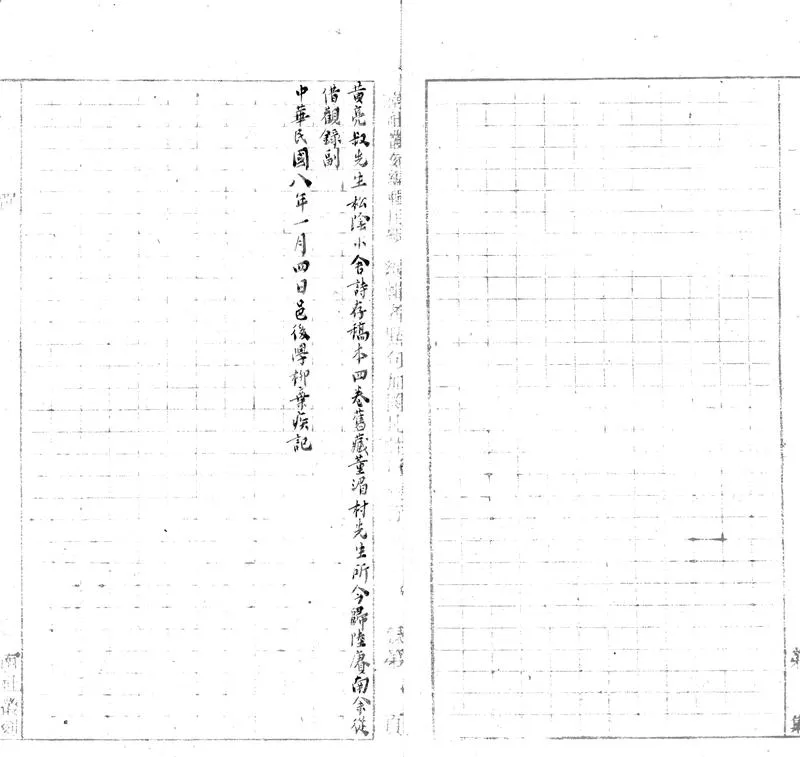 黄亮叔先生松陰小舍詩存稿本四卷舊藏董湄村先生所今歸陸賡南余從
借觀錄副
中華民國八年一月四日邑後學柳棄疾記
南社叢刻
第
集